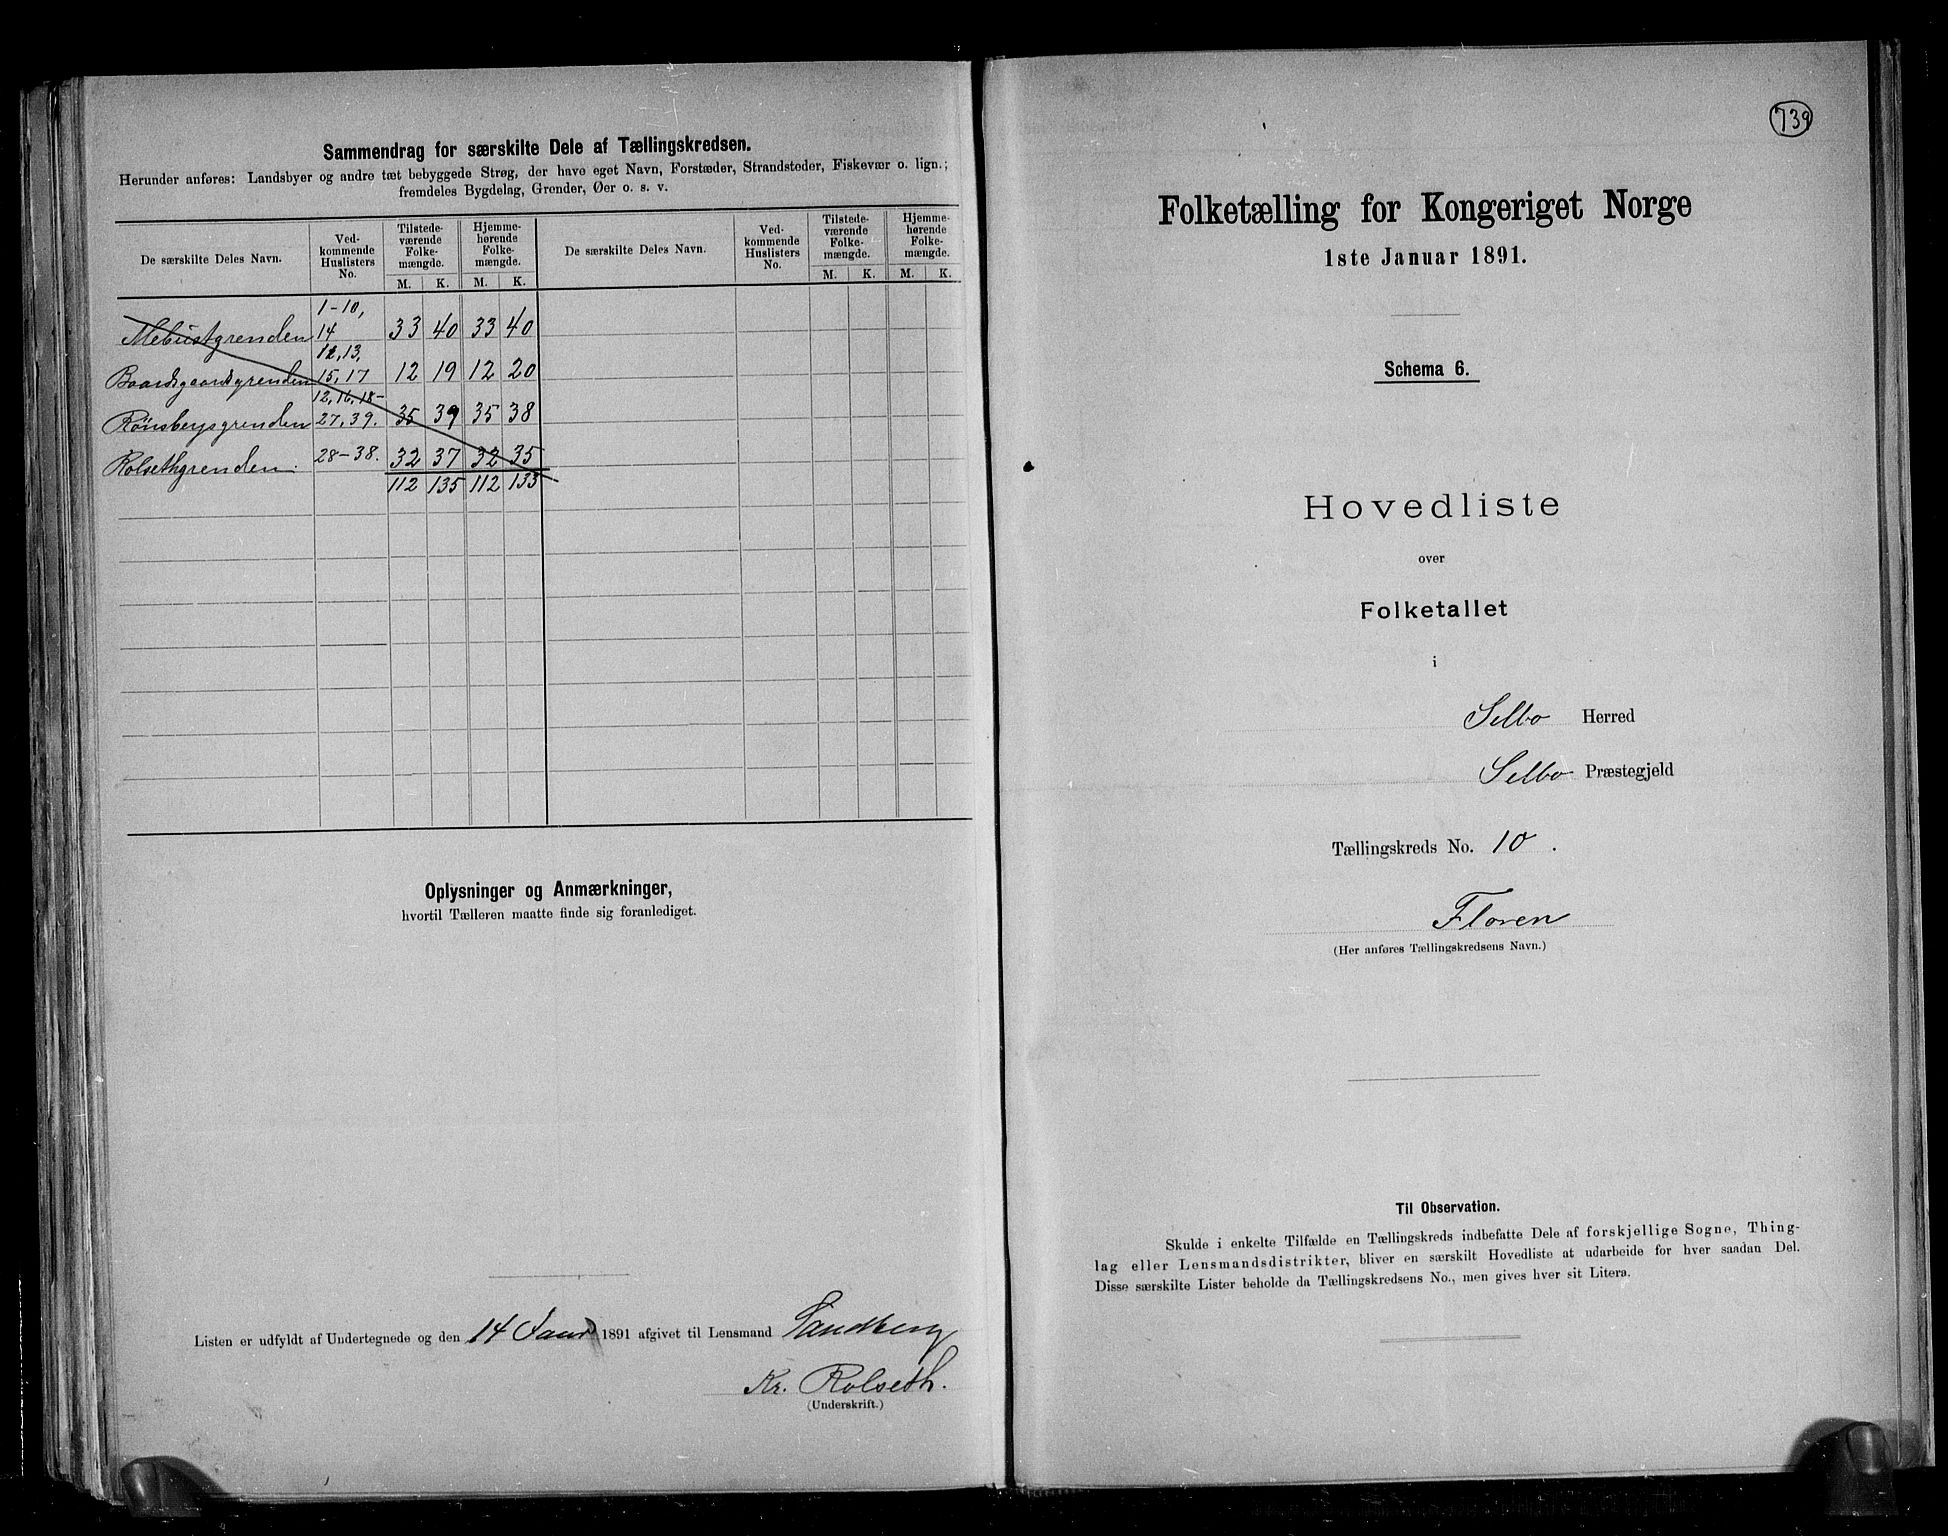 Sammendrag for særskilte Dele af Tællingskredsen.
Herunder anføres: Landsbyer og andre tæt bebyggede Strøg, der have eget Navn, Forstæder, Strandsteder, Fiskevær o. lign.;
fremdeles Bygdelag, Grender, Øer o. s. v.
De særskilte Deles Navn. Ved-kommende Huslisters No. Tilstede-værende Folke-mængde. Hjemme-hørende Folke-mængde. De særskilte Deles Navn. Ved-kommende Huslisters No. Tilstede-værende Folke-mængde. Hjemme-hørende Folke-mængde.
M. K. M. K. M. K. M. K.
Mebustgrenden 1-10, 14 33 40 33 40
Baardsgaardsgrenden 12, 13, 15, 17 12 19 12 20
Rønsbergsgrenden 12, 16, 18-27, 39. 35 39 35 38
Rolsethgrenden. 28-38. 32 37 32 35
112 135 112 133
Oplysninger og Anmærkninger,
hvortil Tælleren maatte finde sig foranlediget.
Listen er udfyldt af Undertegnede og den 14 Januar 1891 afgivet til Lensmand Sandberg
Kr. Rolseth.
(Underskrift.)
739
Folketælling for Kongeriget Norge
1ste Januar 1891.
Schema 6.
Hovedliste
over
Folketallet
i
Selbo Herred
Selbo Præstegjeld
Tællingskreds No. 10.
Floren
(Her anføres Tællingskredsens Navn.)
Til Observation.
Skulde i enkelte Tilfælde en Tællingskreds indbefatte Dele af forskjellige Sogne, Thing-
lag eller Lensmandsdistrikter, bliver en særskilt Hovedliste at udarbeide for hver saadan Del.
Disse særskilte Lister beholde da Tællingskredsens No., men gives hver sit Litera.